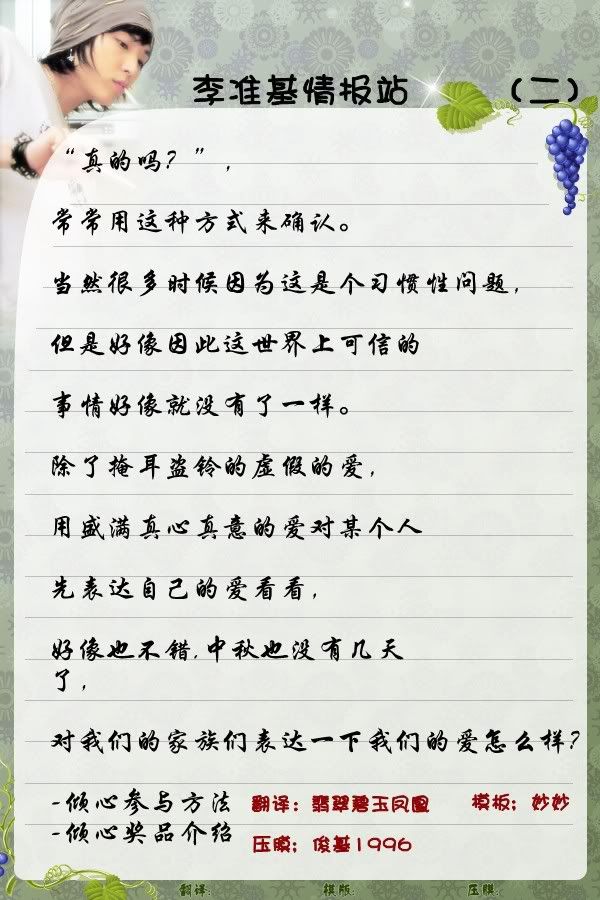 李准基情报站 （二）
“真的吗？”，
常常用这种方式来确认。
当然很多时候因为这是个习惯性问题，
但是好像因此这世界上可信的
事情好像就没有了一样。
除了掩耳盗铃的虚假的爱，
用盛满真心真意的爱对某个人
先表达自己的爱看看，
好像也不错，中秋也没有几天
了，
对我们的家族们表达一下我们的爱怎么样？
-倾心参与方法 翻译：翡翠碧玉凤凰 模板；妙妙
-倾心奖品介绍 压膜；俊基1996
翻译： 模版： 压膜：